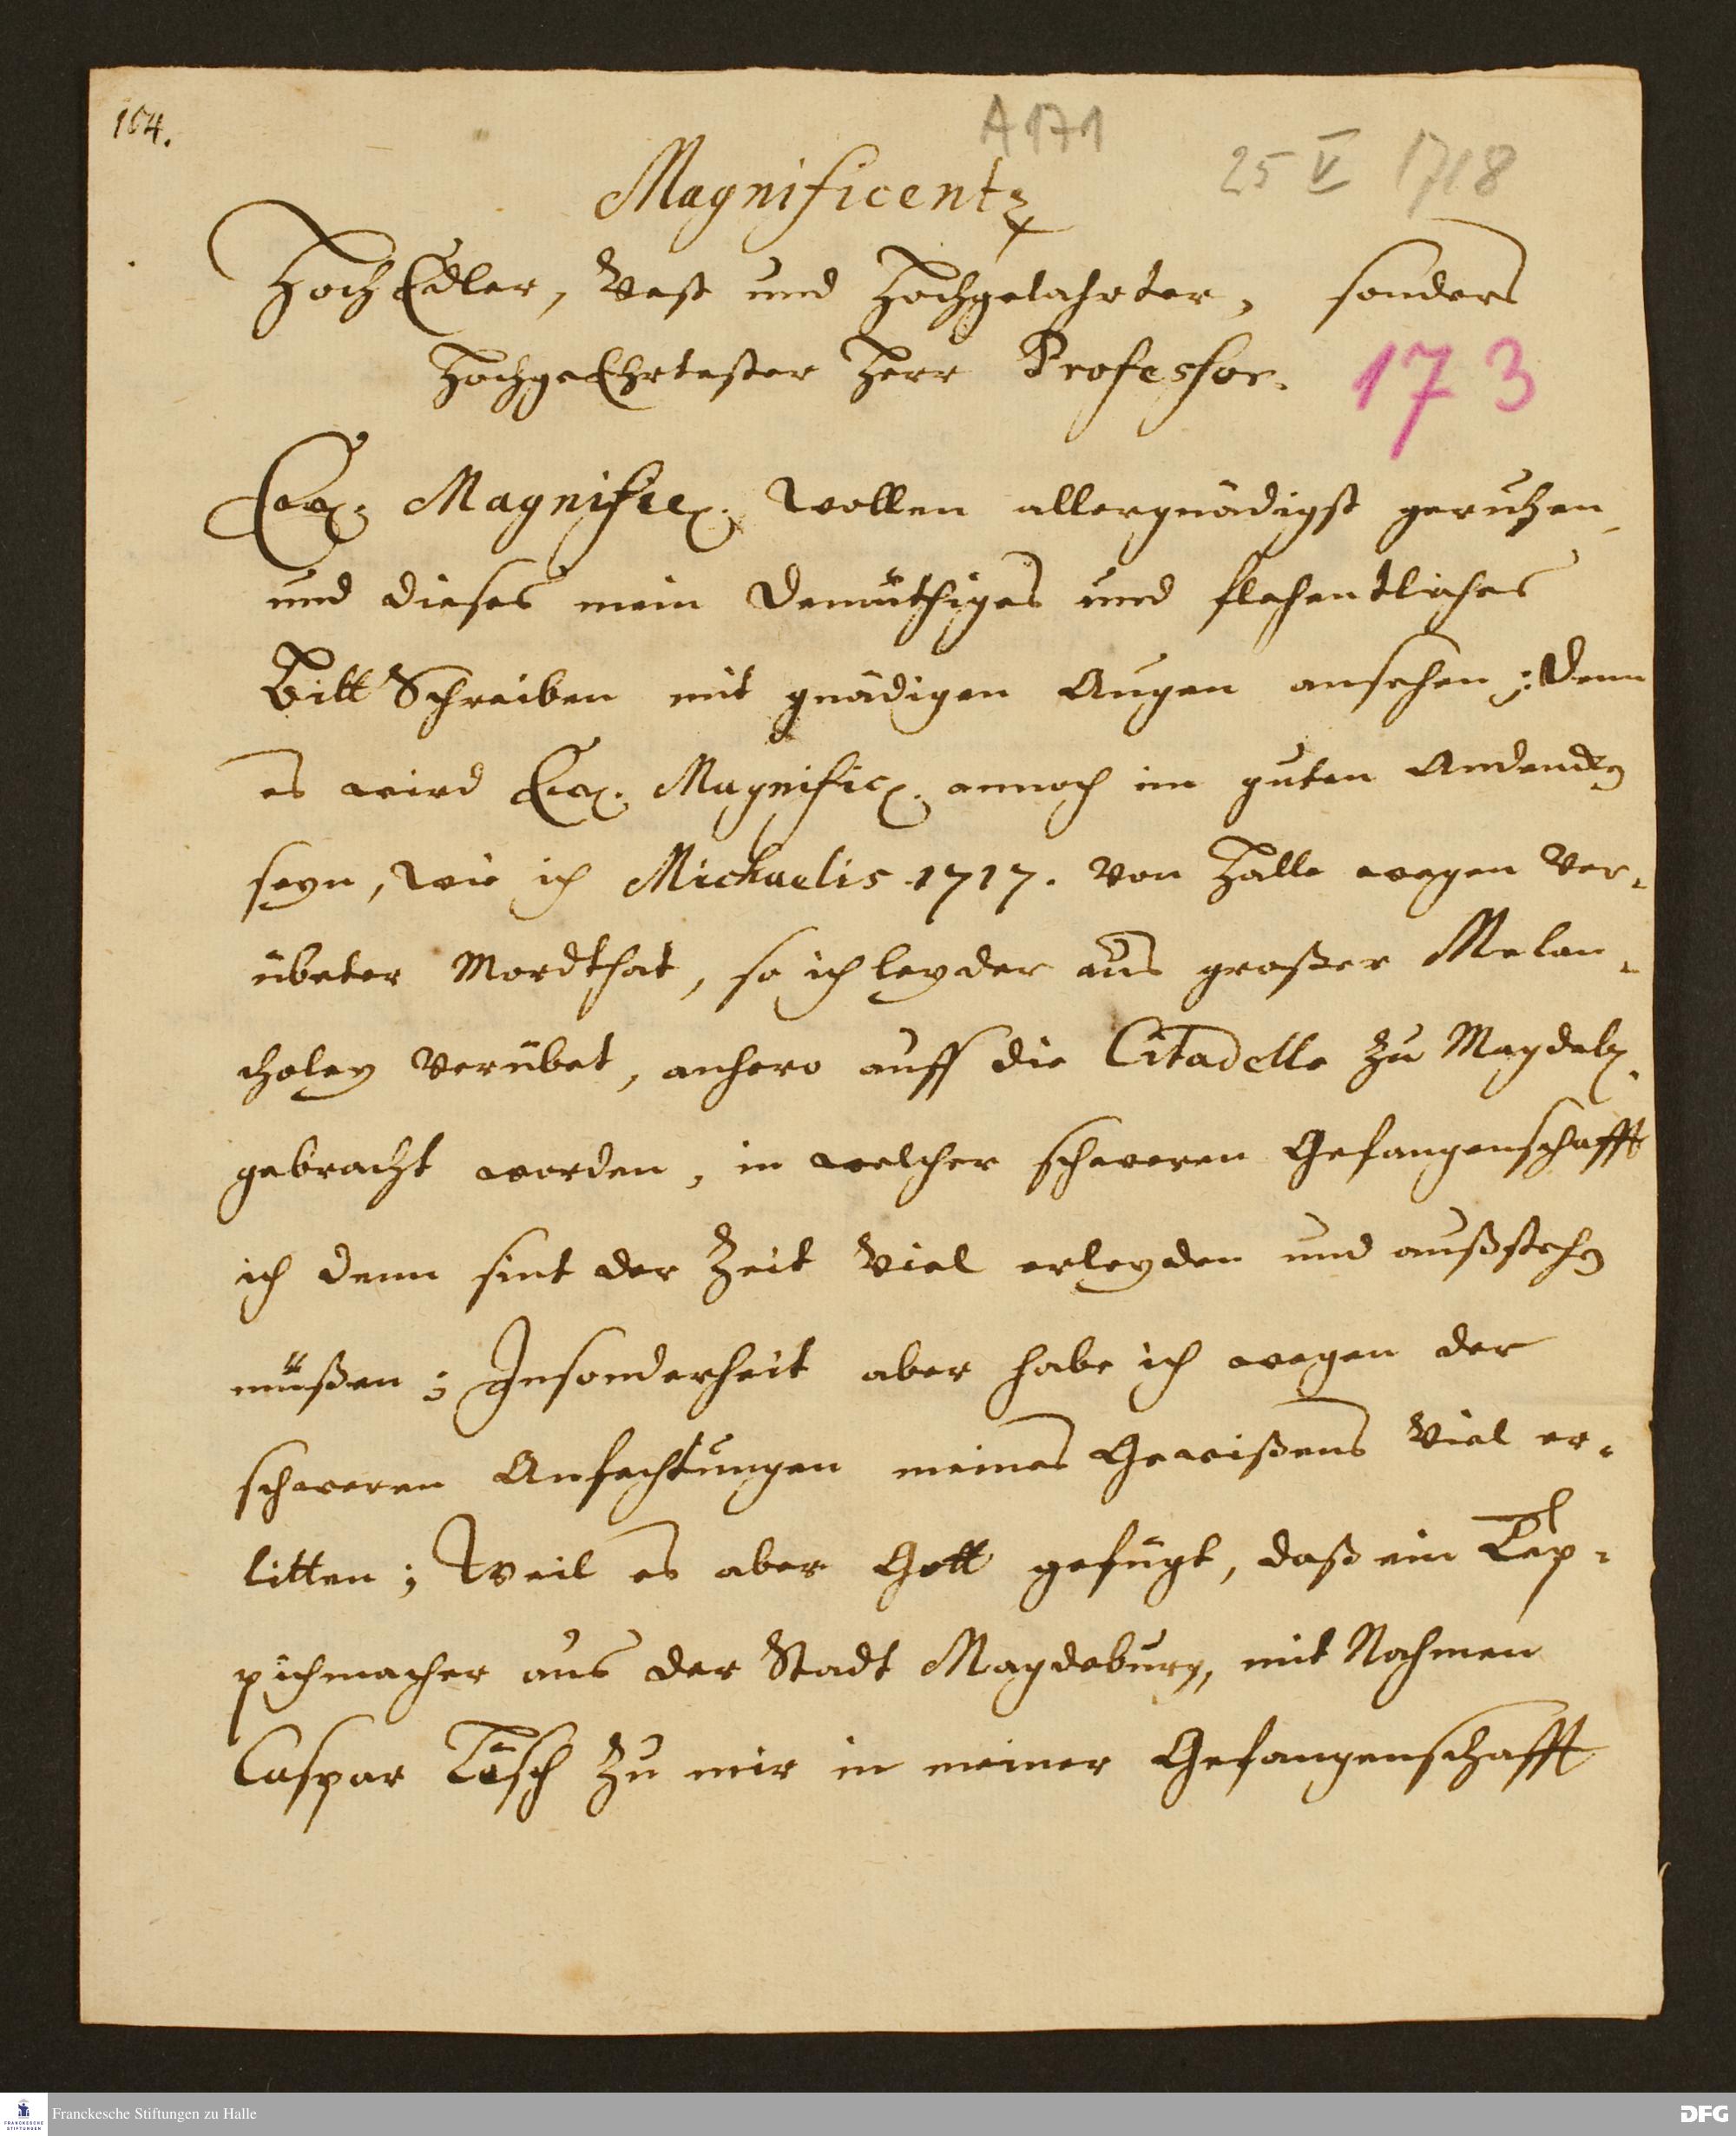 104.
A 171
25 V 1718
Magnificentz
HochEdler, Vest und Hochgelahrter, sonders
HochgeEhrtester Herr Professor.
173
Ew. Magnific. wollen allergnädigst geruhen,
und dieses mein demüthiges und flehentliches
Bitt Schreiben mit gnädigen Augen ansehen; denn
es wird Ew. Magnific. annoch im guten
seyn, wie ich Michaelis 1717. von Halle wegen ver-
übeter Mordthat, so ich leyder aus großer Melan-
choley verübet, anhero auff die Citadelle zu Magdeb.
gebracht worden, in welcher schweren Gefangenschafft
ich denn sint der Zeit viel erleyden und außstehen
müßen; Insonderheit aber habe ich wegen der
schweren Anfechtungen meines Gewißens viel er-
litten; Weil es aber Gott gefügt, daß ein Tep-
pichmacher aus der Stadt Magdeburg, mit Nahmen
Caspar zu mir in meiner Gefangenschafft
Franckesche Stiftungen zu Halle
FRANCKESCHE
STIFTUNGEN
DFG